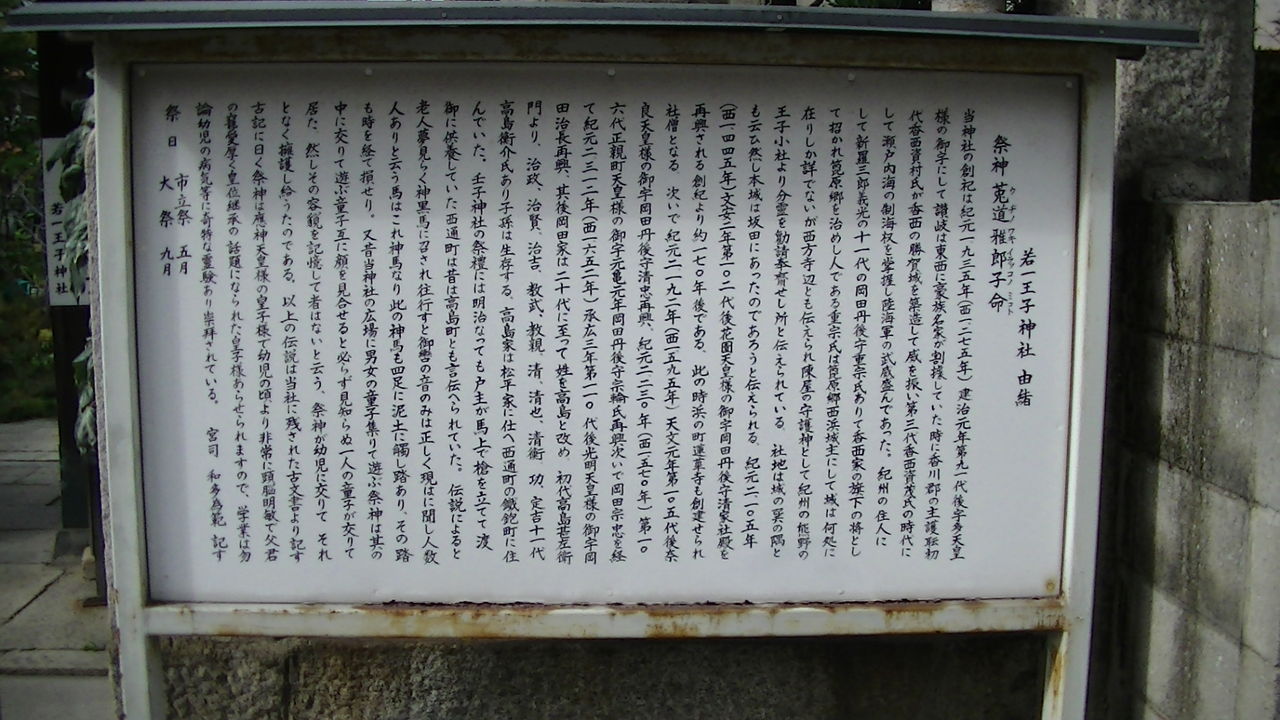 若一王子神社 由緒
祭神 莵道雅郎子命
ウヂノワキイラツコノミコト
当神社の創祀は紀元一九三五年(西一二七五年)建治元年第九一代後宇多天皇
様の御宇にして讃岐は東西に豪族名家が割據していた時に香川郡の主護職初
代香西資村氏が香西の勝賀城を築造して威を振い第三代香西資茂氏の時代に
して瀬戸内海の制海权を掌握し陸海軍の武威盛んであった。紀州の住人に
して新羅三郎義光の十一代の岡田丹後守重宗氏ありて香西家の旗下の将とし
て招かれ笆原郷を治めし人である重宗氏は笆原郷西浜城主にして城は何処に
在りしか詳でないが西方寺辺とも伝えられ陣屋の守護神として紀州の熊野の
王子小社より分霊を勧請奉斎せし所と伝えられている。 社地は城の巽の隅と
も云ひ然し本城は坂田にあったのであろうと伝えられる。 紀元二一〇五年
(西一四四五年)文安二年第一〇二代後花園天皇様の御宇岡田丹後守清家社殿を
再興される創紀より約一七〇年後である、 此の時浜の町蓮華寺も創建せられ
社僧となる 次いで紀元二一九二年(西一五九五年)天文元年第一〇五代後奈
良天皇様の御宇岡田丹後守清忠再興、紀元二二三〇年(西一五七〇年)第一〇
六代正親町天皇様の御宇元亀元年岡田丹後守宗輪氏再興次いで岡田宗忠を経
て紀元二三一二年(西一六五二年)承広三年第一一〇代後光明天皇様の御宇岡
田治長再興、其後岡田家は二十代に至って姓を高島と改め 初代高島甚左衛
門より、治政、治賢、治吉、教武、教親、清、清也、清衛、功、定吉十一代
高島衛介氏あり子孫に生存する、高島家は松平家に仕へ西通町の鐵鉋町に住
んでいた、王子神社の祭禮には明治なっても戸主が馬上で槍を立てて渡
御に供養していた西通町は昔は高島町とも言伝へられていた、 伝説によると
老人夢見らく神黒馬に召され往行すと御轡の音のみは正しく現はに聞し人数
人ありと云う馬はこれ神馬なり此の神馬も四足に泥土に觸し踏あり、その踏
も時を経て損せり。 又昔当神社の広場に男女の童子集りて遊ぶ祭神は其の
中に交りて遊ぶ童子互に顔を見合せると必らず見知らぬ一人の童子が交りて
居た、然しその容貌を記憶して者はないと云う、祭神が幼児に交りて それ
となく擁護し給うたのである。以上の伝説は当社に残された古文書より記す
古記に曰く祭神は應神天皇様の皇子様で幼児の頃より非常に頭脳明敏で父君
の寵愛厚く皇位継承の話題になられた皇子様あらせられますので、学業は勿
論幼児の病気等に奇特な霊験あり崇拝されている。 宮司 和多為範 記す
祭日 市立祭 五月
大祭 九月
若一王子神社